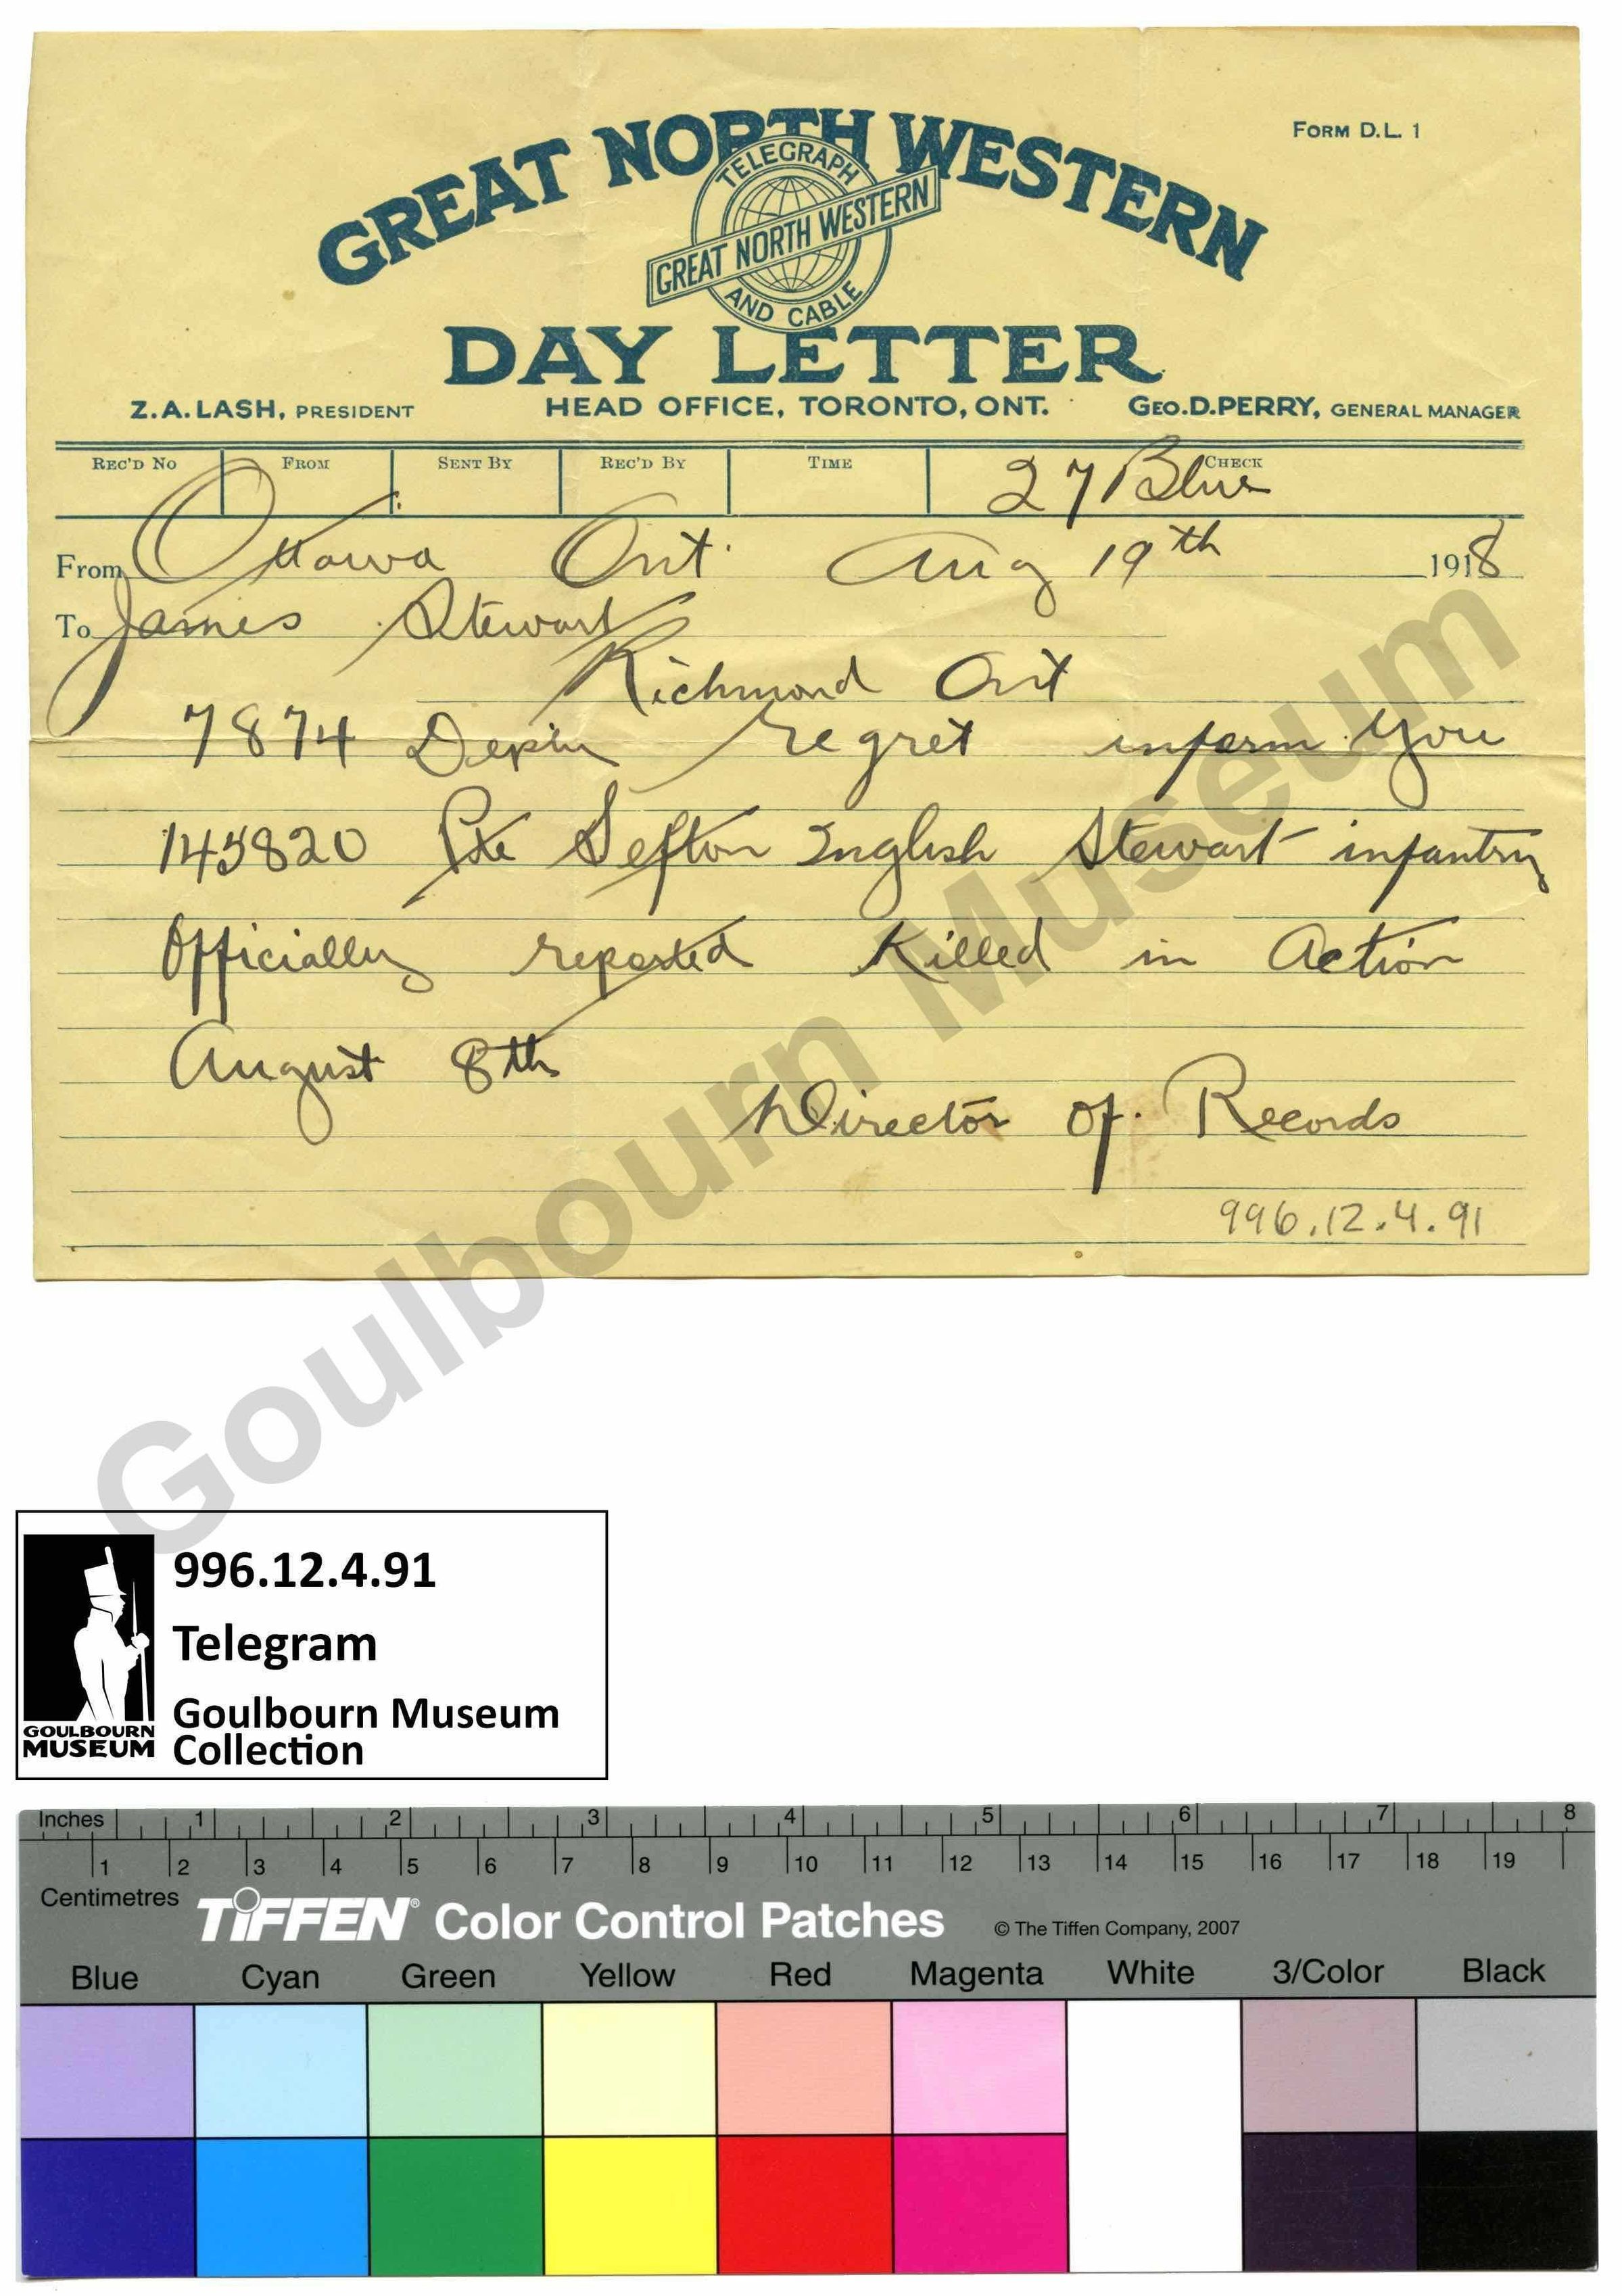 FORM D.L. 1
GREAT NORTH WESTERN
TELEGRAPH
GREAT NORTH WESTERN
AND CABLE
DAY LETTER
Z.A. LASH, PRESIDENT HEAD OFFICE, TORONTO, ONT. GEO. D. PERRY, GENERAL MANAGER
REC'D NO FROM SENT BY REC'D BY TIME CHECK
27 Blue
From Ottawa Ont. Aug 19th 1918
To James Stewart
Richmond Ont
7874 regret inform you
145820 Pte Sefton English Stewart infantry
Officially reported Killed in Action
August 8th
Director of Records
996.12.4.91
Goulbourn Museum
996.12.4.91
Telegram
Goulbourn Museum
Collection
GOULBOURN
MUSEUM
Inches 1 2 3 4 5 6 7 8
1 2 3 4 5 6 7 8 9 10 11 12 13 14 15 16 17 18 19
Centimetres
TIFFEN® Color Control Patches © The Tiffen Company, 2007
Blue Cyan Green Yellow Red Magenta White 3/Color Black